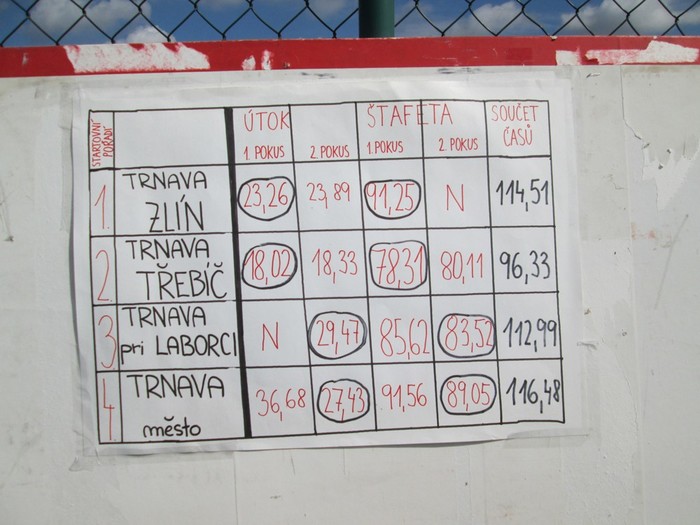 STARTOVNÍ POŘADÍ ÚTOK ŠTAFETA SOUČET ČASŮ
1. POKUS 2. POKUS 1. POKUS 2. POKUS
1. TRNAVA ZLÍN 23,26 23,89 91,25 N 114,51
2. TRNAVA TŘEBÍČ 18,02 18,33 78,31 80,11 96,33
3 TRNAVA pri LABORCI N 29,47 85,62 83,52 112,99
4. TRNAVA město 36,68 27,43 91,56 89,05 116,48